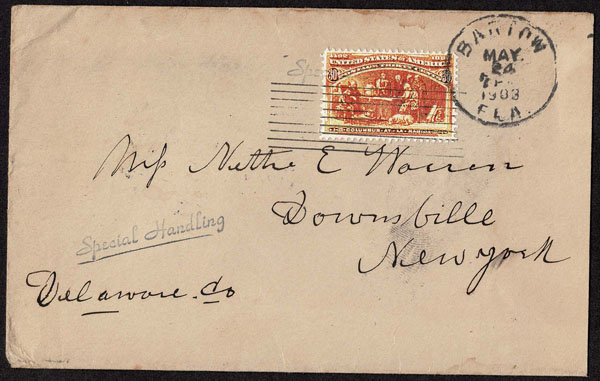 1492 1892
UNITED STATES OF AMERICA
30 30
COLUMBUS AT LA RABIDA
BARTOW
MAY
24
1903
FLA.
Miss Nettie E Warren
Downsville
New york
Special Handling
Delaware. Co